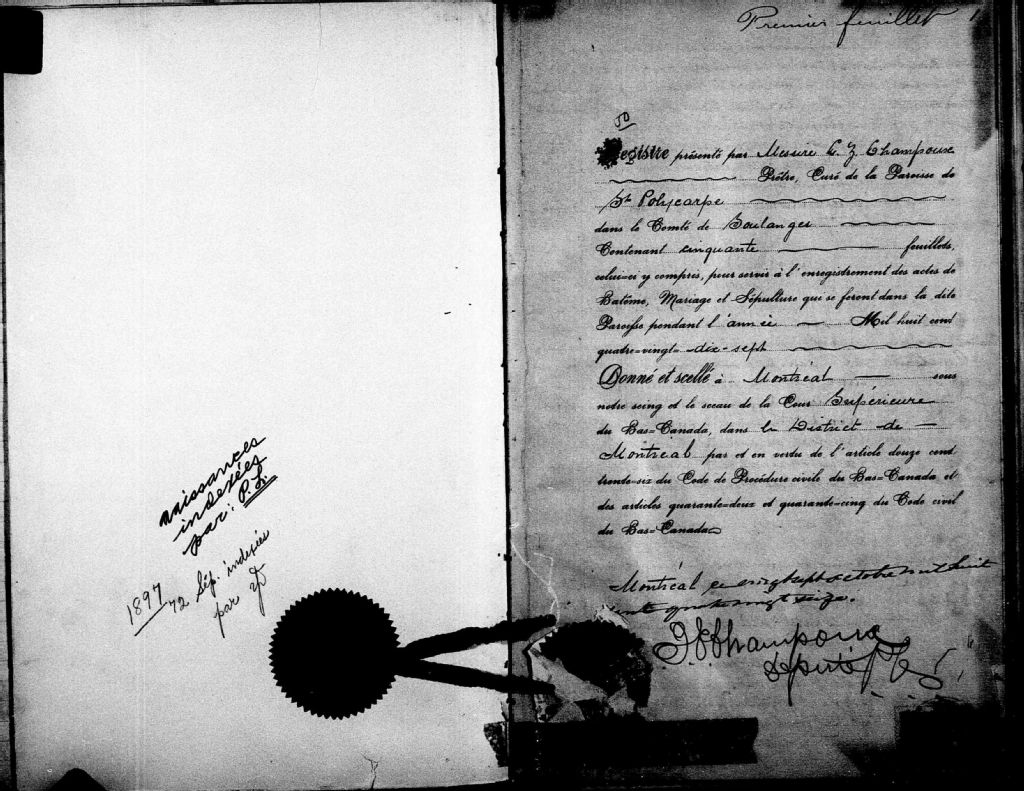 naissances
indexées
par: P. L.
1897
72 Sép. indexées
par
Premier feuillet 1
50
Registre présenté par Messire C. Z. Champoux
Prêtre, Curé de la Paroisse de
St Polycarpe
dans le Comté de Soulanges
Contenant cinquante feuillets,
celui-ci y compris, pour servir à l'enregistrement des actes de
Batême, Mariage et Sépulture qui se feront dans la dite
Paroisse pendant l'année Mil huit cent
quatre-vingt-dix-sept
Donné et scellé à Montréal sous
notre seing et le sceau de la Cour Supérieure
du Bas-Canada, dans le District de
Montréal par et en vertu de l'article douze cent
trente-six du Code de Procédure civile du Bas-Canada et
des articles quarante-deux et quarante-cinq du Code civil
du Bas-Canada
Montréal ce vingt sept octobre mil huit
cent quatre vingt seize.
Champoux
député